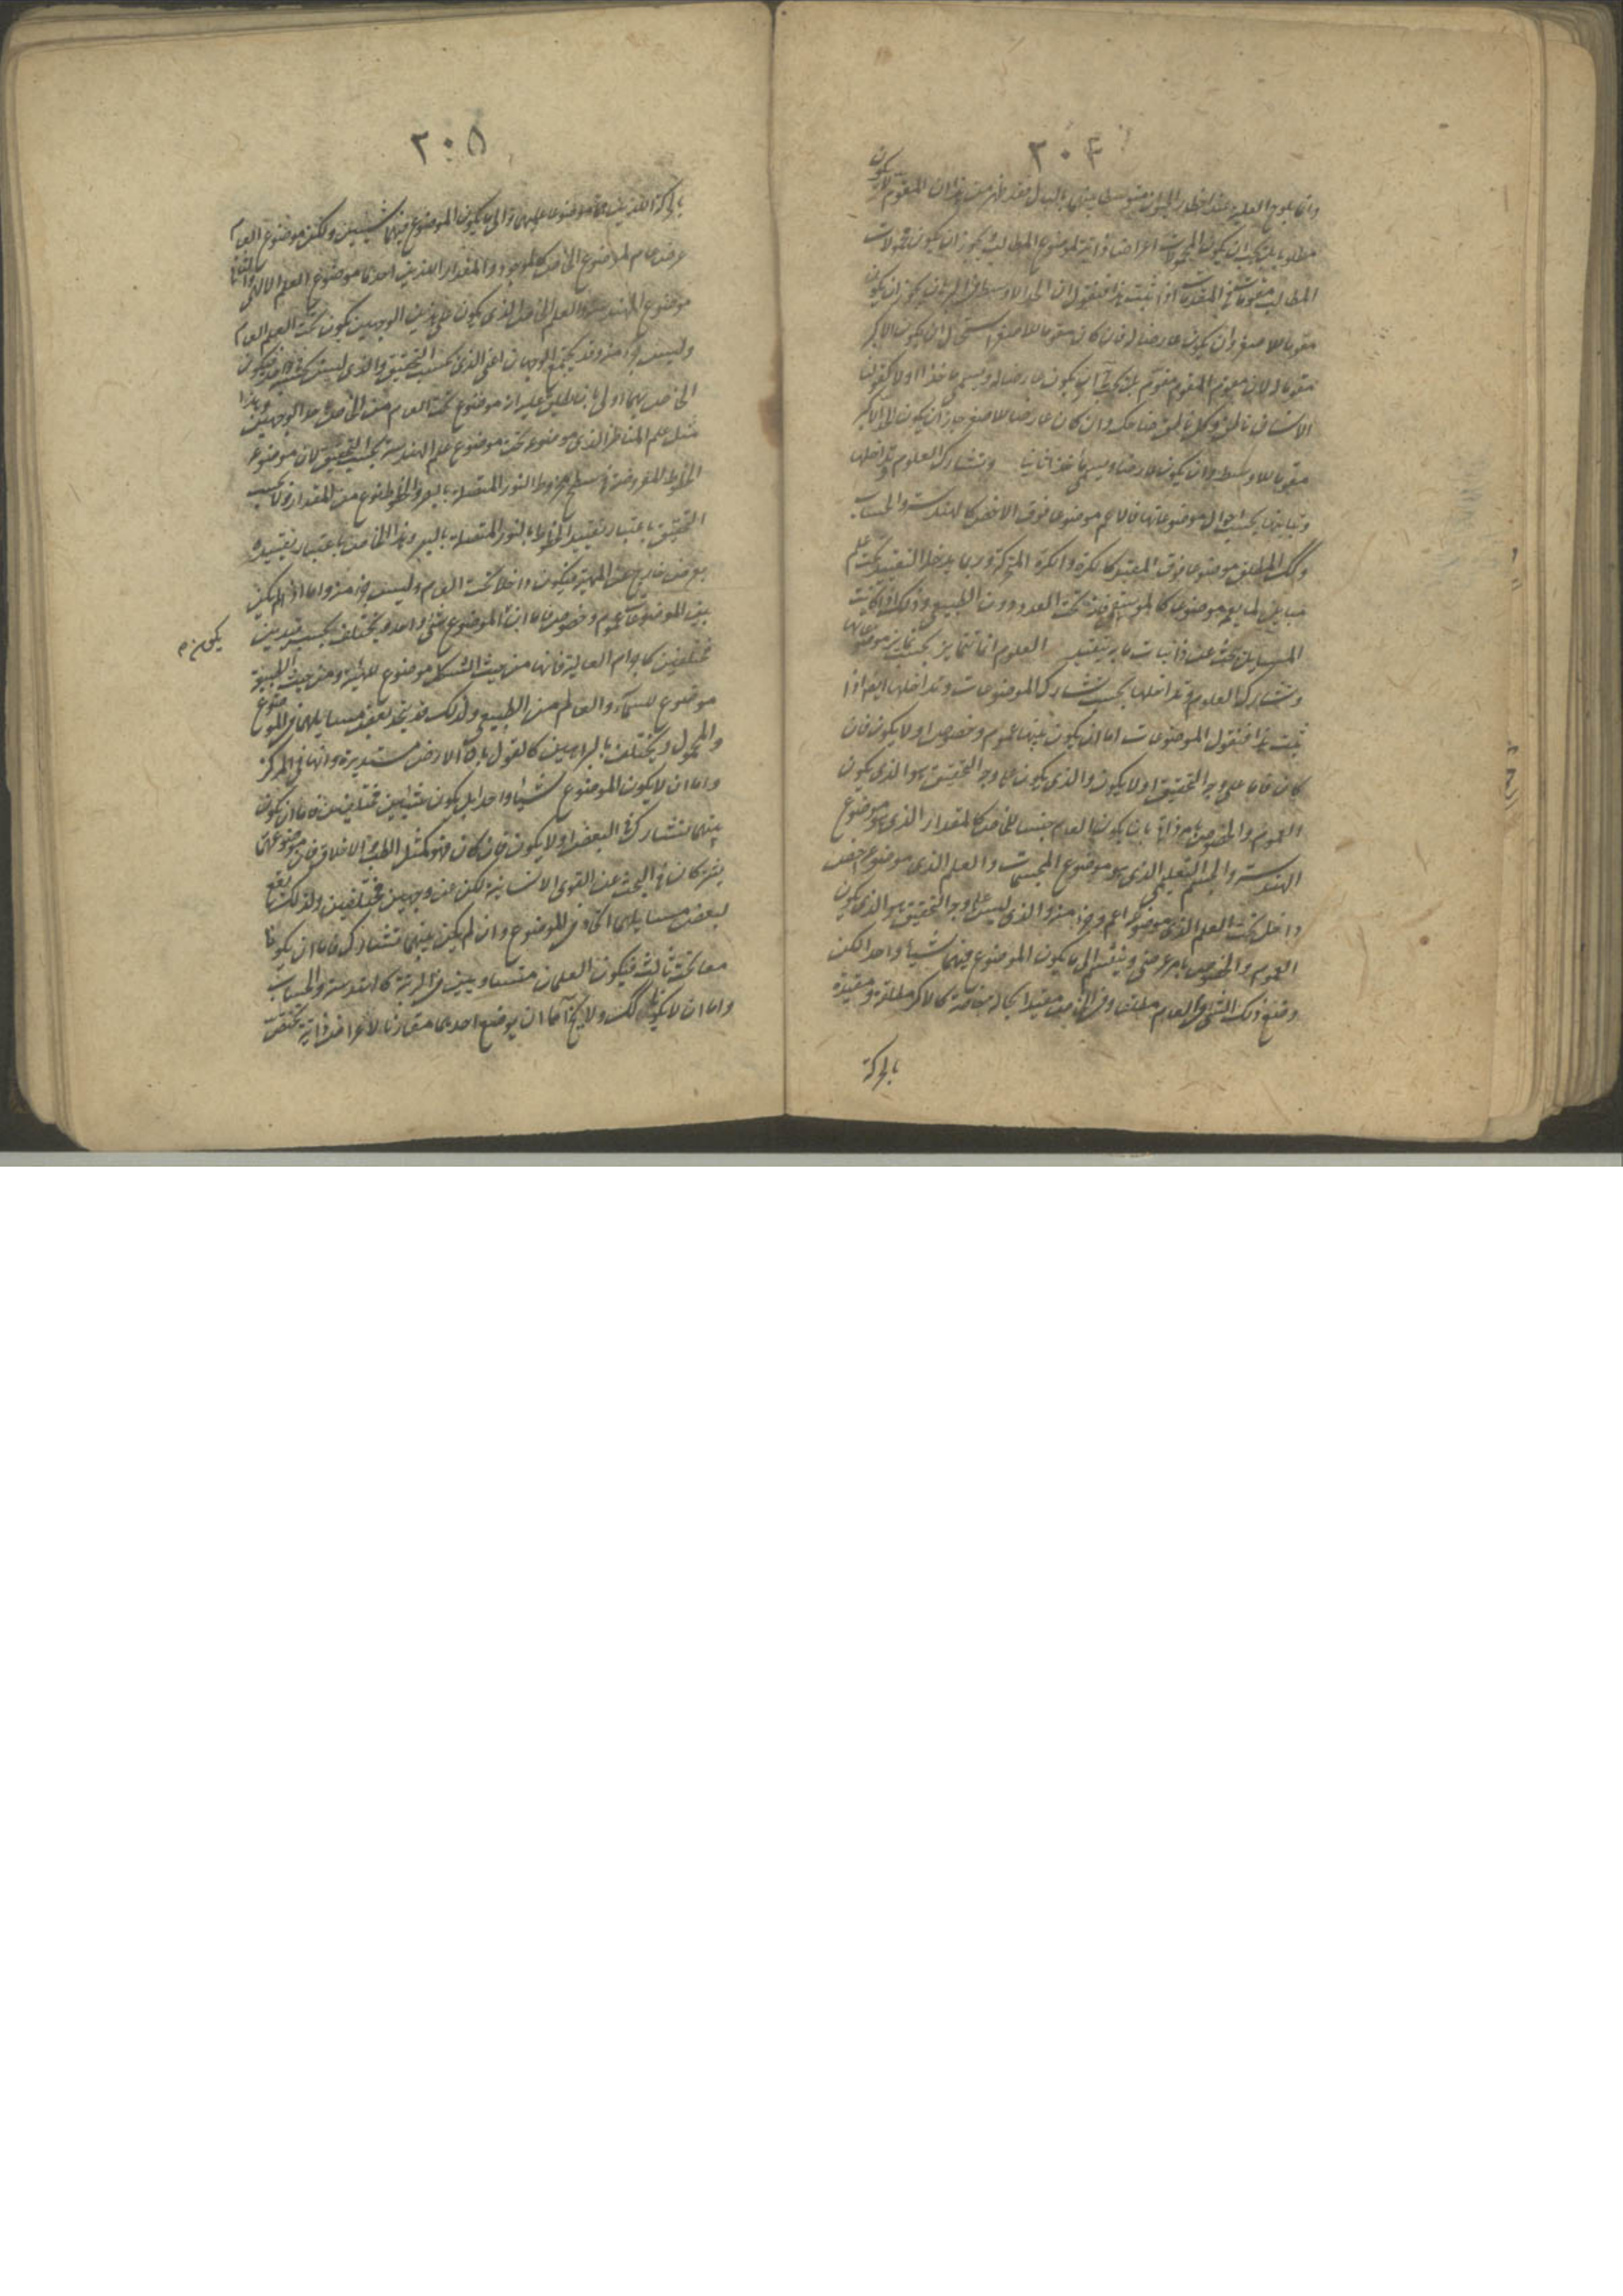 ٢٠٤
وانما يلوح العلية عند اخطار البال متوسط بينهما بالبال فقد ظهر من هذا ان المقوم لا يكون
مطلوبا بل يجب ان يكون المحمولات اعراضا ذاتية لموضوع المطالب ويجوز ان يكون محمولات
المطالب مقومات في المقدمات اذا ثبت هذا فنقول ان الحد الاوسط في البرهان يجوز ان يكون
مقوما للاصغر وان يكون عارضا له فان كان مقوما للاصغر استحال ان يكون الاكبر
مقوما له لان مقوم المقوم مقوم بل يجب ان يكون عارضا له ويسمى ماخذا اولا كقولنا
الانسان ناطق وكل ناطق ضاحك وان كان عارضا للاصغر جاز ان يكون الاكبر
مقوما للاوسط وان يكون عارضا ويسمى ماخذا ثانيا وتشارك العلوم وتداخلها
وتباينها بحسب احوال موضوعاتها فالاعم موضوعا فوق الاخص كالهندسة والحساب
وكك المطلق موضوعا فوق المقيد كالكرة والكرة المتحركة وربما يدخل التقييد تحت علم
مباين لما يعم موضوعا كالموسيقى فانه تحت العدد دون الطبيعي وذلك اذا كانت
المسائل تبحث عن ذاتيات ما به يتقيد العلوم انما تتمايز بحسب تمايز موضوعاتها
وتشارك العلوم وتداخلها بحسب تشارك الموضوعات وتداخلها ايضا اذا
ثبت هذا فنقول الموضوعات اما ان يكون بينها عموم وخصوص او لا يكون فان
كان فاما على وجه التحقيق او لا يكون والذي يكون على وجه التحقيق هو الذي يكون
العموم والخصوص بامر ذاتي بان يكون العام جنسا للخاص كالمقدار الذي هو موضوع
الهندسة والجسم التعليمي الذي هو موضوع المجسمات والعلم الذي موضوعه اخص
داخل تحت العلم الذي موضوعه اعم وجزء منه والذي ليس على وجه التحقيق هو الذي يكون
العموم والخصوص بامر عرضي وينقسم الى ما يكون الموضوع فيهما شيأ واحدا لكن
وضع ذلك الشئ في العام مطلقا وفي الخاص مقيدا بحالة خاصة كالاكر مطلقة ومقيدة
بالحركة
٢٠٥
بالحركة اللذين هما موضوعا علمين والى ما يكون الموضوع فيهما شيئين ولكن موضوع العام
عرض عام لموضوع الخاص كالموجود والمقدار اللذين احدهما موضوع العلم الالهي والثاني
موضوع الهندسة والعلم الخاص الذي يكون على هذين الوجهين يكون تحت العلم العام
وليس جزءا منه وقد يجتمع الوجهان اعني الذي بحسب التحقيق والذي ليس بحسبه في واحد فيكون
الخاص بهما اولى بان يطلق عليه انه موضوع تحت العام من الخاص باحد الوجهين وهذا
مثل علم المناظر الذي موضوعه تحت موضوع علم الهندسة بحسب التحقيق لان موضوعه
الخطوط المفروضة في سطح مخروط النور المتصلة بالبصر والخطوط نوع من المقدار ولا بحسب
التحقيق باعتبار تقييد الخطوط بالنور المتصلة بالبصر وهذا الخاص باعتبار تقييده
بعرض خارج عن المهية فيكون داخلا تحت العام وليس جزءا منه واما اذا لم يكن
بين الموضوعات عموم وخصوص فاما ان الموضوع شئ واحد ويختلف بحسب قيدين
مختلفين كاجرام العالية فانها من حيث الشكل موضوع للهيئة ومن حيث الطبيعة
موضوع للسماء والعالم من الطبيعي ولذلك قد يتحد بعض مسايلهما في الموضوع
والمحمول ويختلف بالبراهين كالقول بان الارض مستديرة وانها في المركز
واما ان لا يكون الموضوع شيئا واحدا بل يكون شيئين مختلفين فاما ان يكون
بينهما تشارك في البعض او لا يكون فان كان فهو كمثل الطب والاخلاق فان موضوعهما
يشتركان في البحث عن القوى الانسانية لكن عن وجهين مختلفين ولذلك يقع
لبعض مسايلهما اتحاد في الموضوع وان لم يكن بينهما تشارك فاما ان يكونا
معا تحت ثالث فيكون العلمان متساويين في الرتبة كالهندسة والحساب
واما ان لا يكونا كك ولا يخ اما ان يوضع احدهما مقارنا لاعراض ذاتية تختص
يكون م